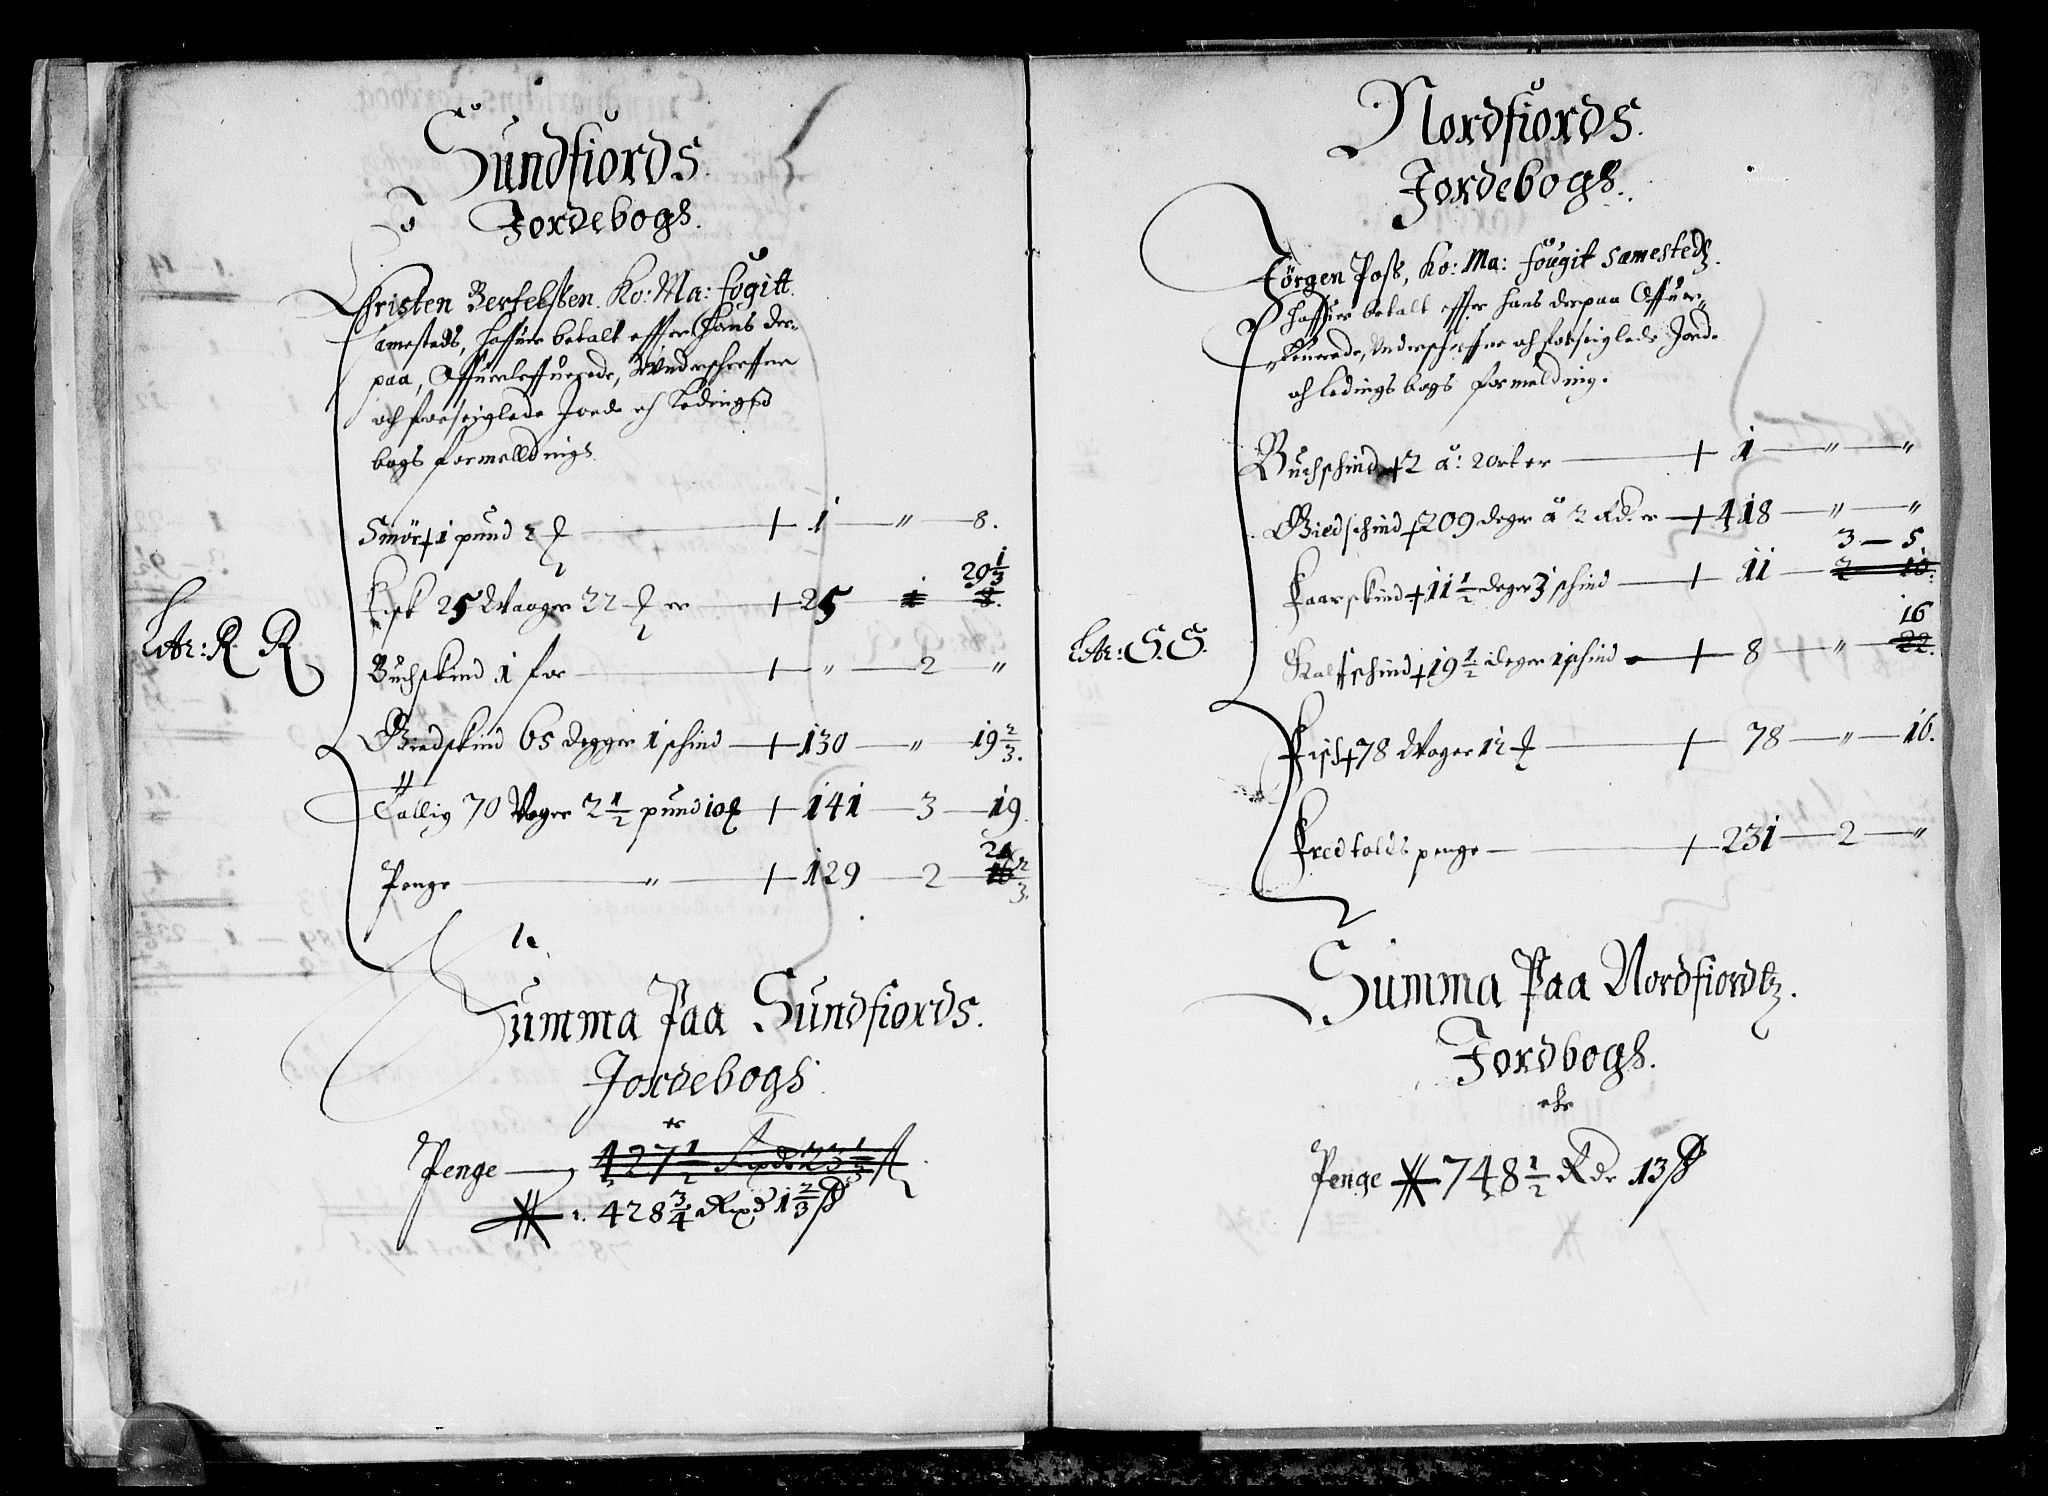 Sundfiords.
Jordebogs.
Christen Bertelssen. Ko: Ma: fogitt
samesteds, haffuer betalt effter hans der-
paa, Offuerleffuerede, Underschreffne
och forseiglede Jorde och Ledings
bogs formelldings
Litr: R. R
Smör + 1 pund 2 ℔ + 1 — " — 8.
Fisk 25 Waager 32 ℔ er + 25 20 1/3
Buchskind 1 for + " — 2 "
Giedskind 65 degger 1 schind + 130 — " — 19 2/3.
Tallig 70 Woger 2 1/2 pund 10 ℔ + 141 — 3 — 19
Penge " + 129 — 2 — 2/3.
Summa Paa Sundfiords.
Jordebogs
er
Penge 427 1/2 Rixdr 23 1/3 ß
428 3/4 Rixd 1 2/3 ß
Nordfiords.
Jordebogs.
Jörgen Post, Ko: Ma: fougit samestedtz.
haffuer betalt effter hans derpaa Offuer-
leuerede, Underschreffne och forseiglede Jord-
och ledings bogs formelding.
Litr: S. S.
Buchschind + 2 a: 2 ort er + 1 — " — "
Giedschind + 209 deger a 2 Rd. er + 418 — " — "
Faarskind + 11 1/2 deger 3 schind + 11 3 — 5
2 10.
Kalfschind + 19 1/2 deger 1 schind + 8 — " 16
22.
Fisch + 78 Woger 12 ℔ + 78 — " — 16.
Fredtolds penge + 231 — 2 — "
Summa Paa Nordfiordtz.
Jordbogs.
ehr
Penge 748 1/2 Rdr 13 ß